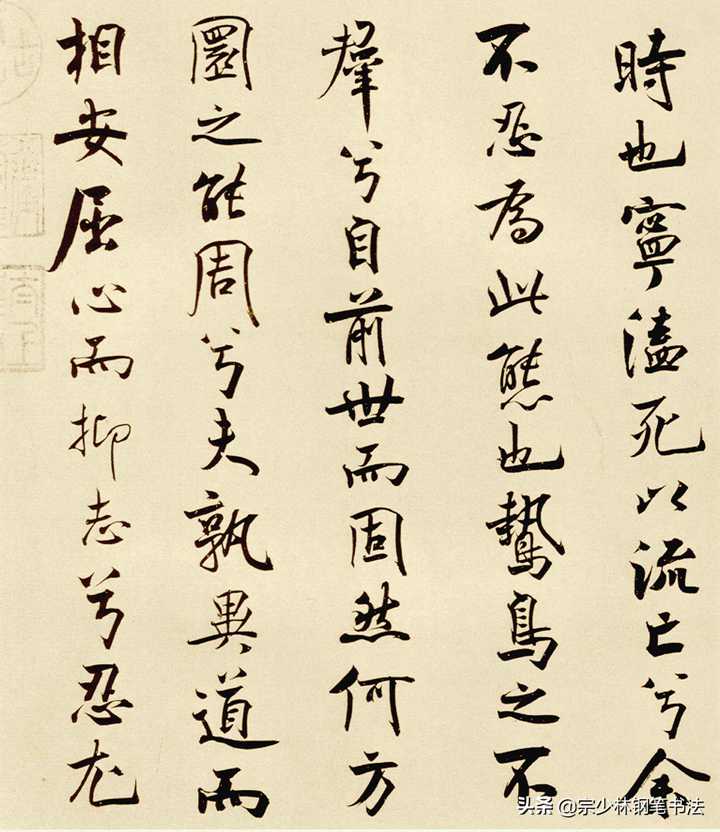 時也寧溘死以流亡兮余
不忍為此態也鷙鳥之不
羣兮自前世而固然何方
圜之能周兮夫孰異道而
相安屈心而抑志兮忍尤
头条 @宗少林钢笔书法